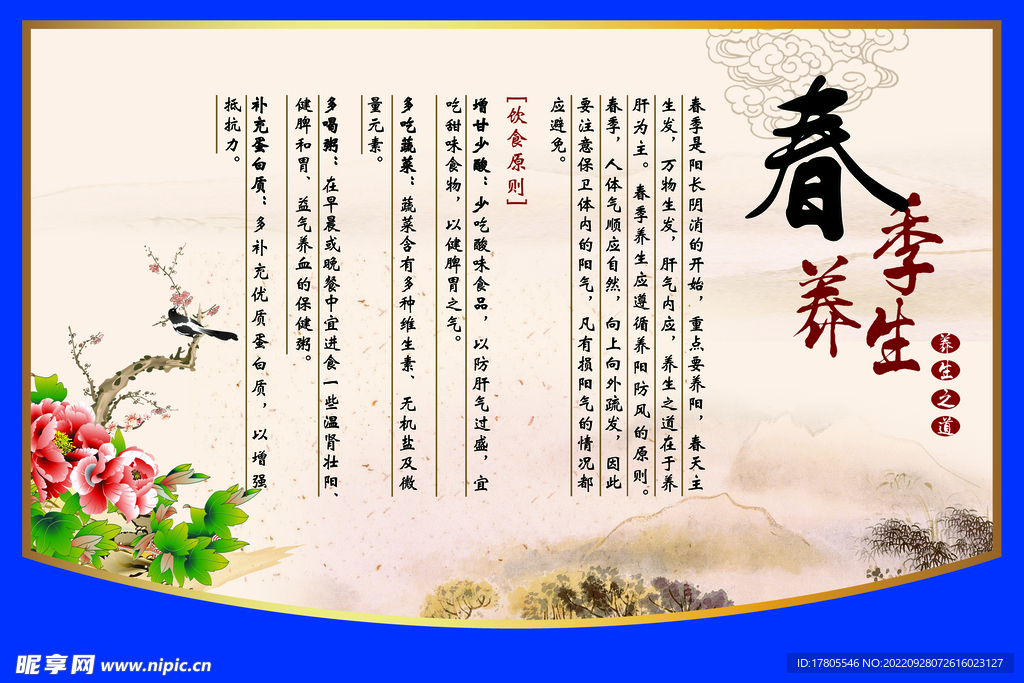 春
季
养
生
养生之道
春季是阳长阴消的开始，重点要养阳，春天主
生发，万物生发，肝气内应，养生之道在于养
肝为主。春季养生应遵循养阳防风的原则。
春季，人体气顺应自然，向上向外疏发，因此
要注意保卫体内的阳气，凡有损阳气的情况都
应避免。
[饮食原则]
增甘少酸：少吃酸味食品，以防肝气过盛，宜
吃甜味食物，以健脾胃之气。
多吃蔬菜：蔬菜含有多种维生素、无机盐及微
量元素。
多喝粥：在早晨或晚餐中宜进食一些温肾壮阳、
健脾和胃、益气养血的保健粥。
补充蛋白质：多补充优质蛋白质，以增强
抵抗力。
昵享网 www.nipic.cn
ID:17805546 NO:20220928072616023127